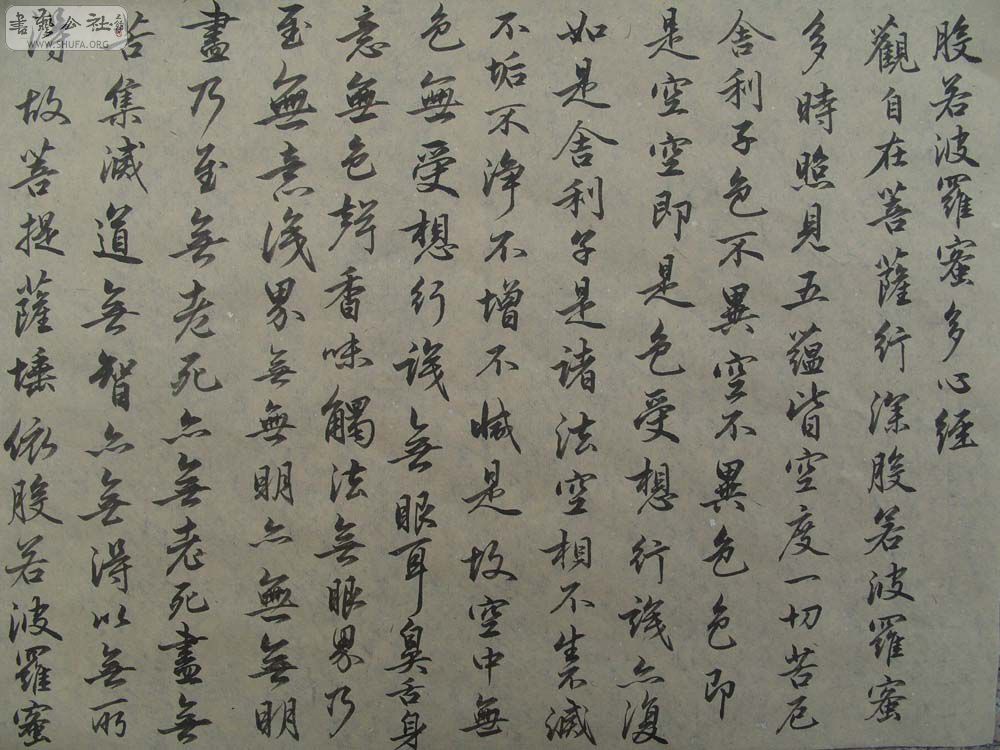 書藝公社
WWW.SHUFA.ORG
般若波羅蜜多心經
觀自在菩薩行深般若波羅蜜
多時照見五蘊皆空度一切苦厄
舍利子色不異空不異色色即
是空空即是色受想行識亦復
如是舍利子是諸法空相不生不滅
不垢不淨不增不減是故空中無
色無受想行識無眼耳鼻舌身
意無色聲香味觸法無眼界乃
至無意識界無無明亦無無明
盡乃至無老死亦無老死盡無
苦集滅道無智亦無得以無所
得故菩提薩埵依般若波羅蜜